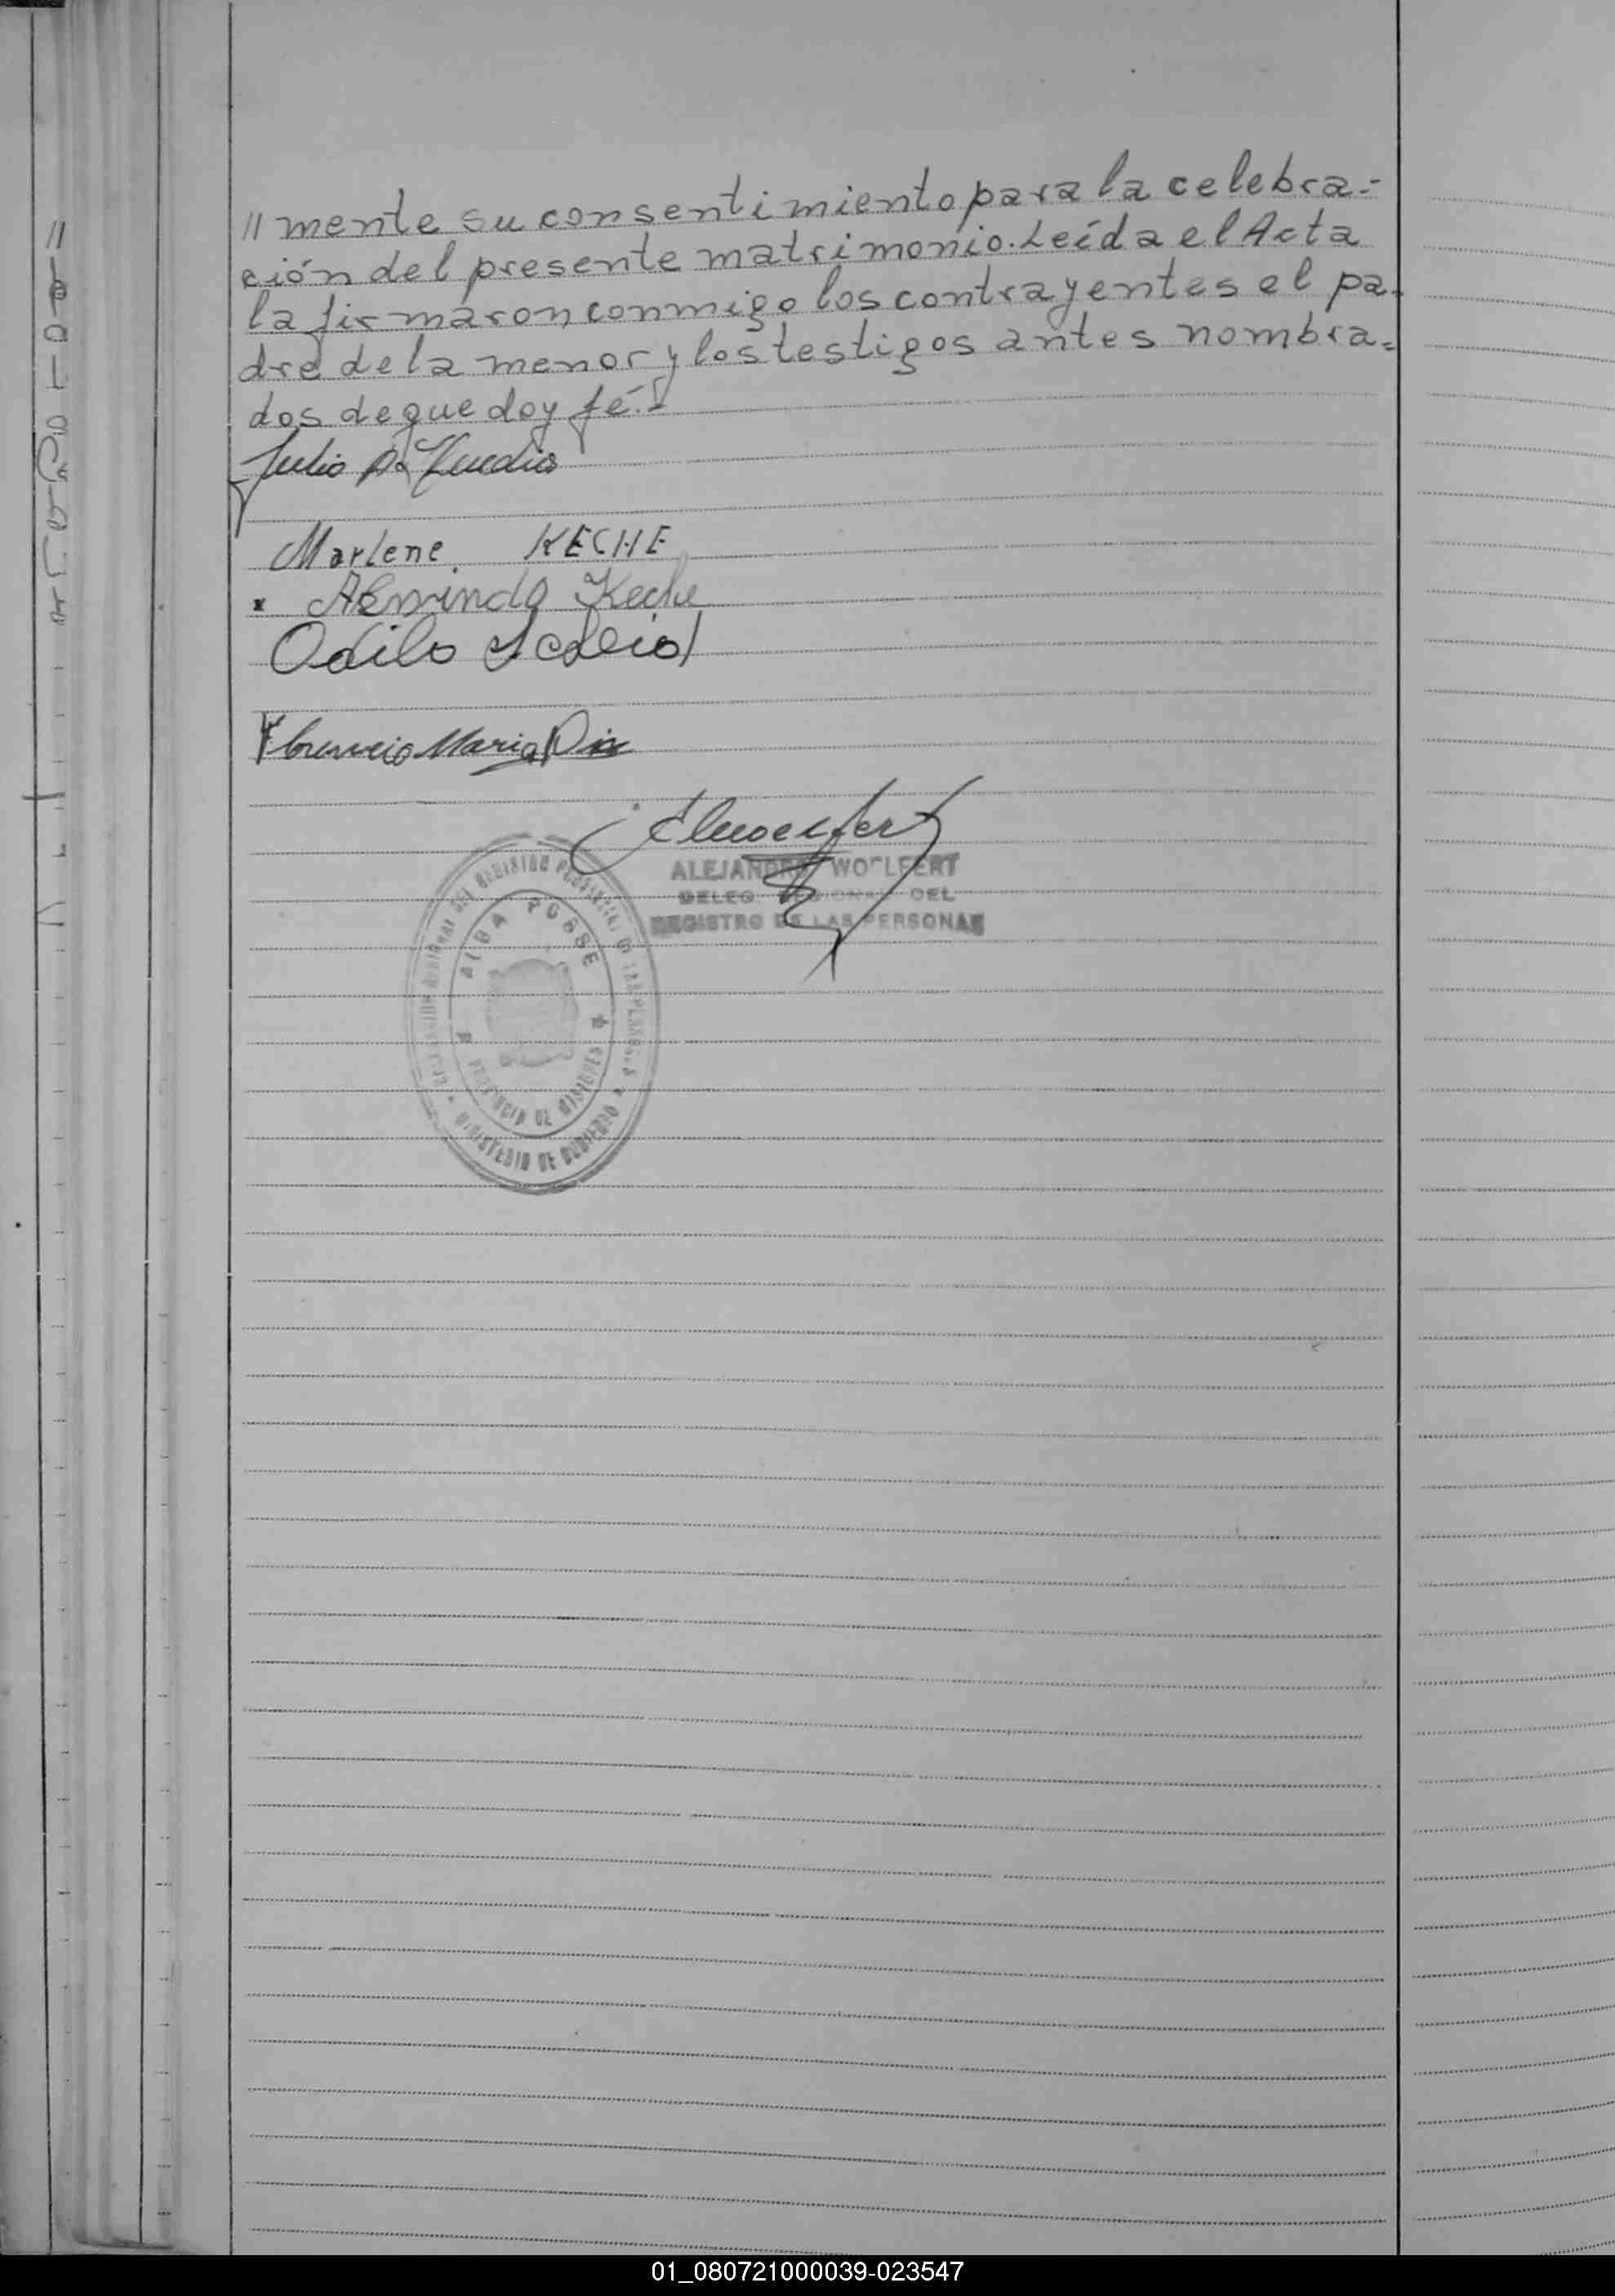 // mente su consentimiento para la celebra-
ción del presente matrimonio. Leída el Acta
la firmaron conmigo los contrayentes el pa-
dre de la menor y los testigos antes nombra-
dos de que doy fé.-
Julio
Marlene KECHE
x Keche
Odilo
Mario
ALEJANDRO WOELFERT
DELEG. REGIONAL DEL
REGISTRO DE LAS PERSONAS
ALBA POSSE
PROVINCIA DE MISIONES
MINISTERIO DE GOBIERNO
01_080721000039-023547